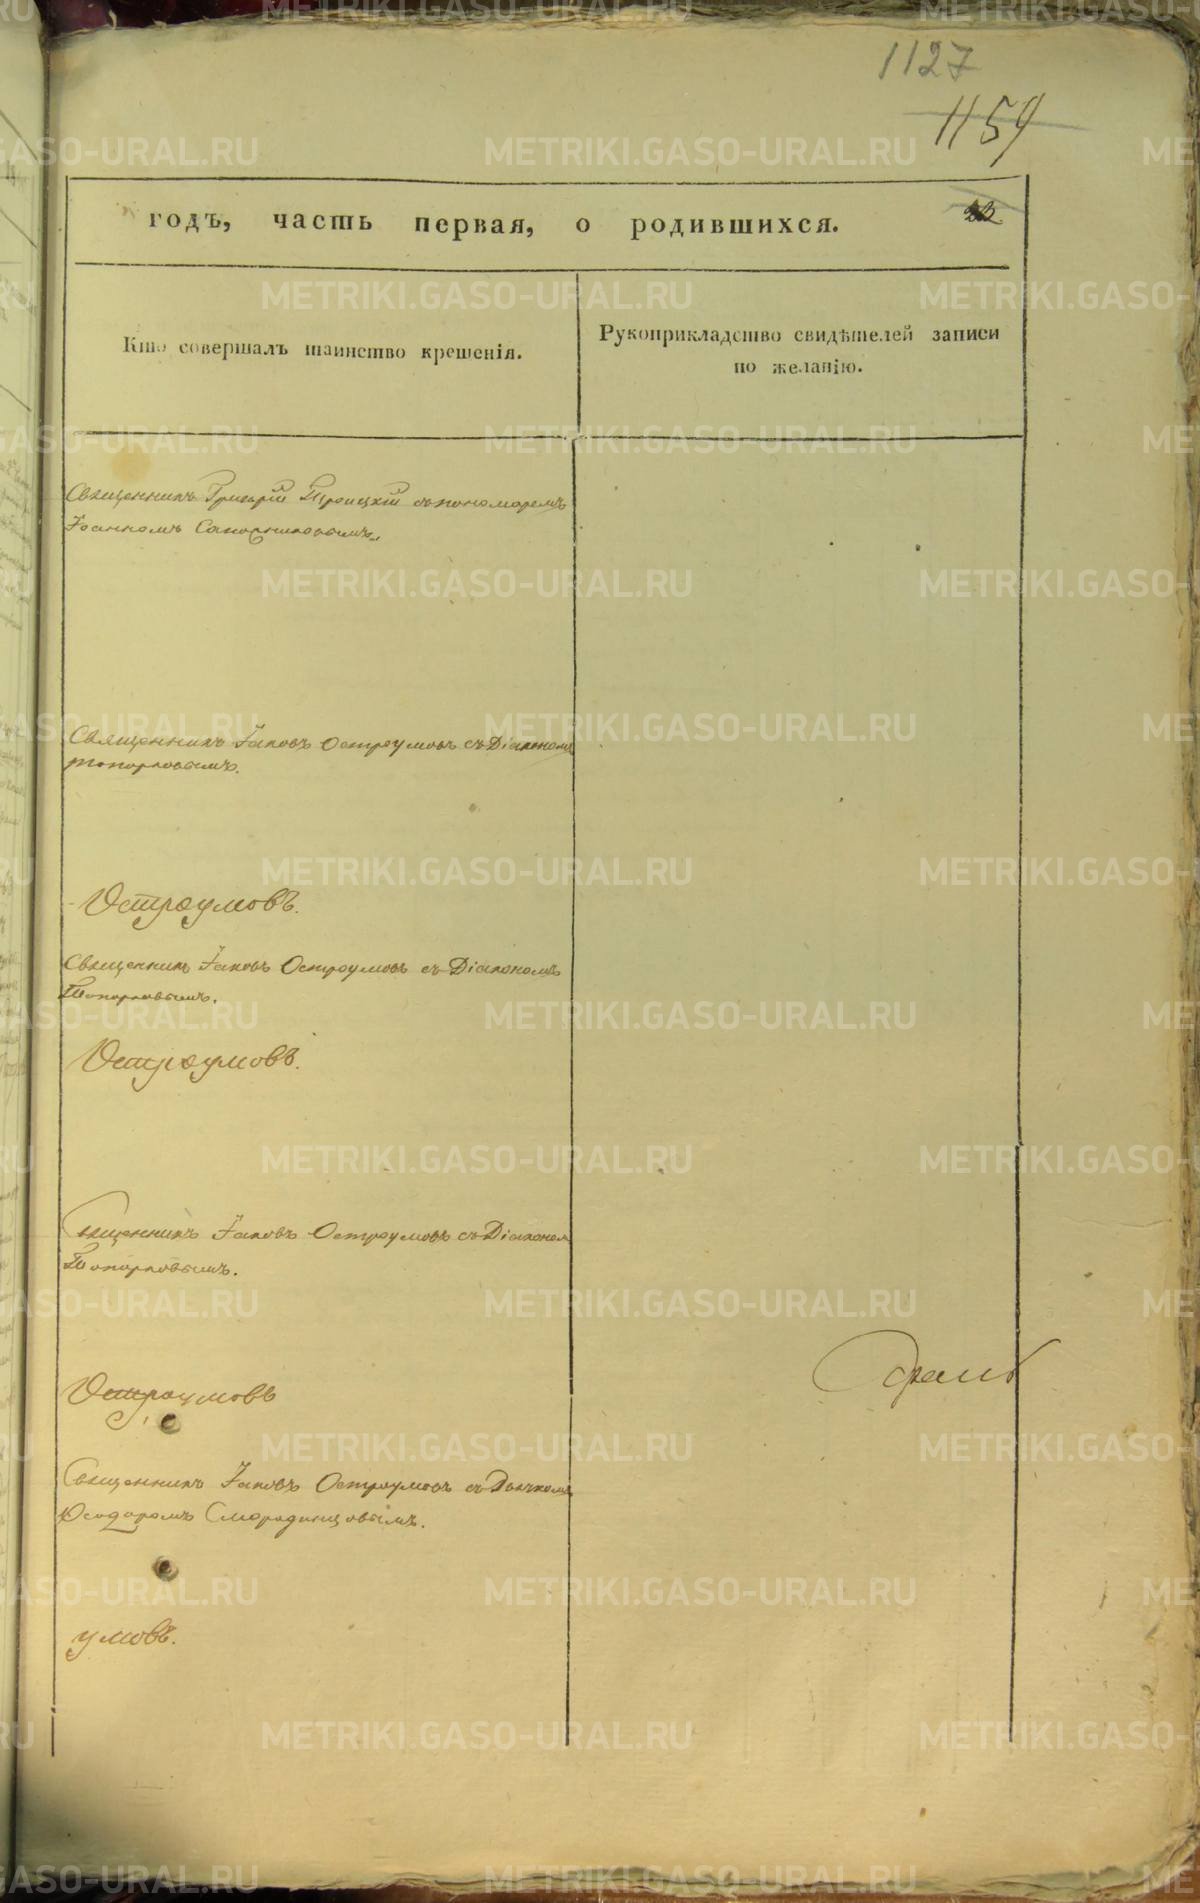 1127
1154
годъ, часть первая, о родившихся.
23
Кто совершалъ таинство крещенія.
Рукоприкладство свидѣтелей записи
по желанію.
Священникъ Григорій Троицкій съ пономаремъ
Іоанномъ
Священникъ Іаковъ Остроумовъ съ Діаконом
топорковымъ.
Остроумовъ.
Священникъ Іаковъ Остроумовъ съ Діакономъ
Топорковымъ.
Остроумовъ.
Священникъ Іаковъ Остроумовъ съ Діаконом
Топорковымъ.
Остроумовъ
Священникъ Іаковъ Остроумовъ съ Дьячкомъ
Ѳеодоромъ Смородинцовымъ.
умовъ.
METRIKI.GASO-URAL.RU